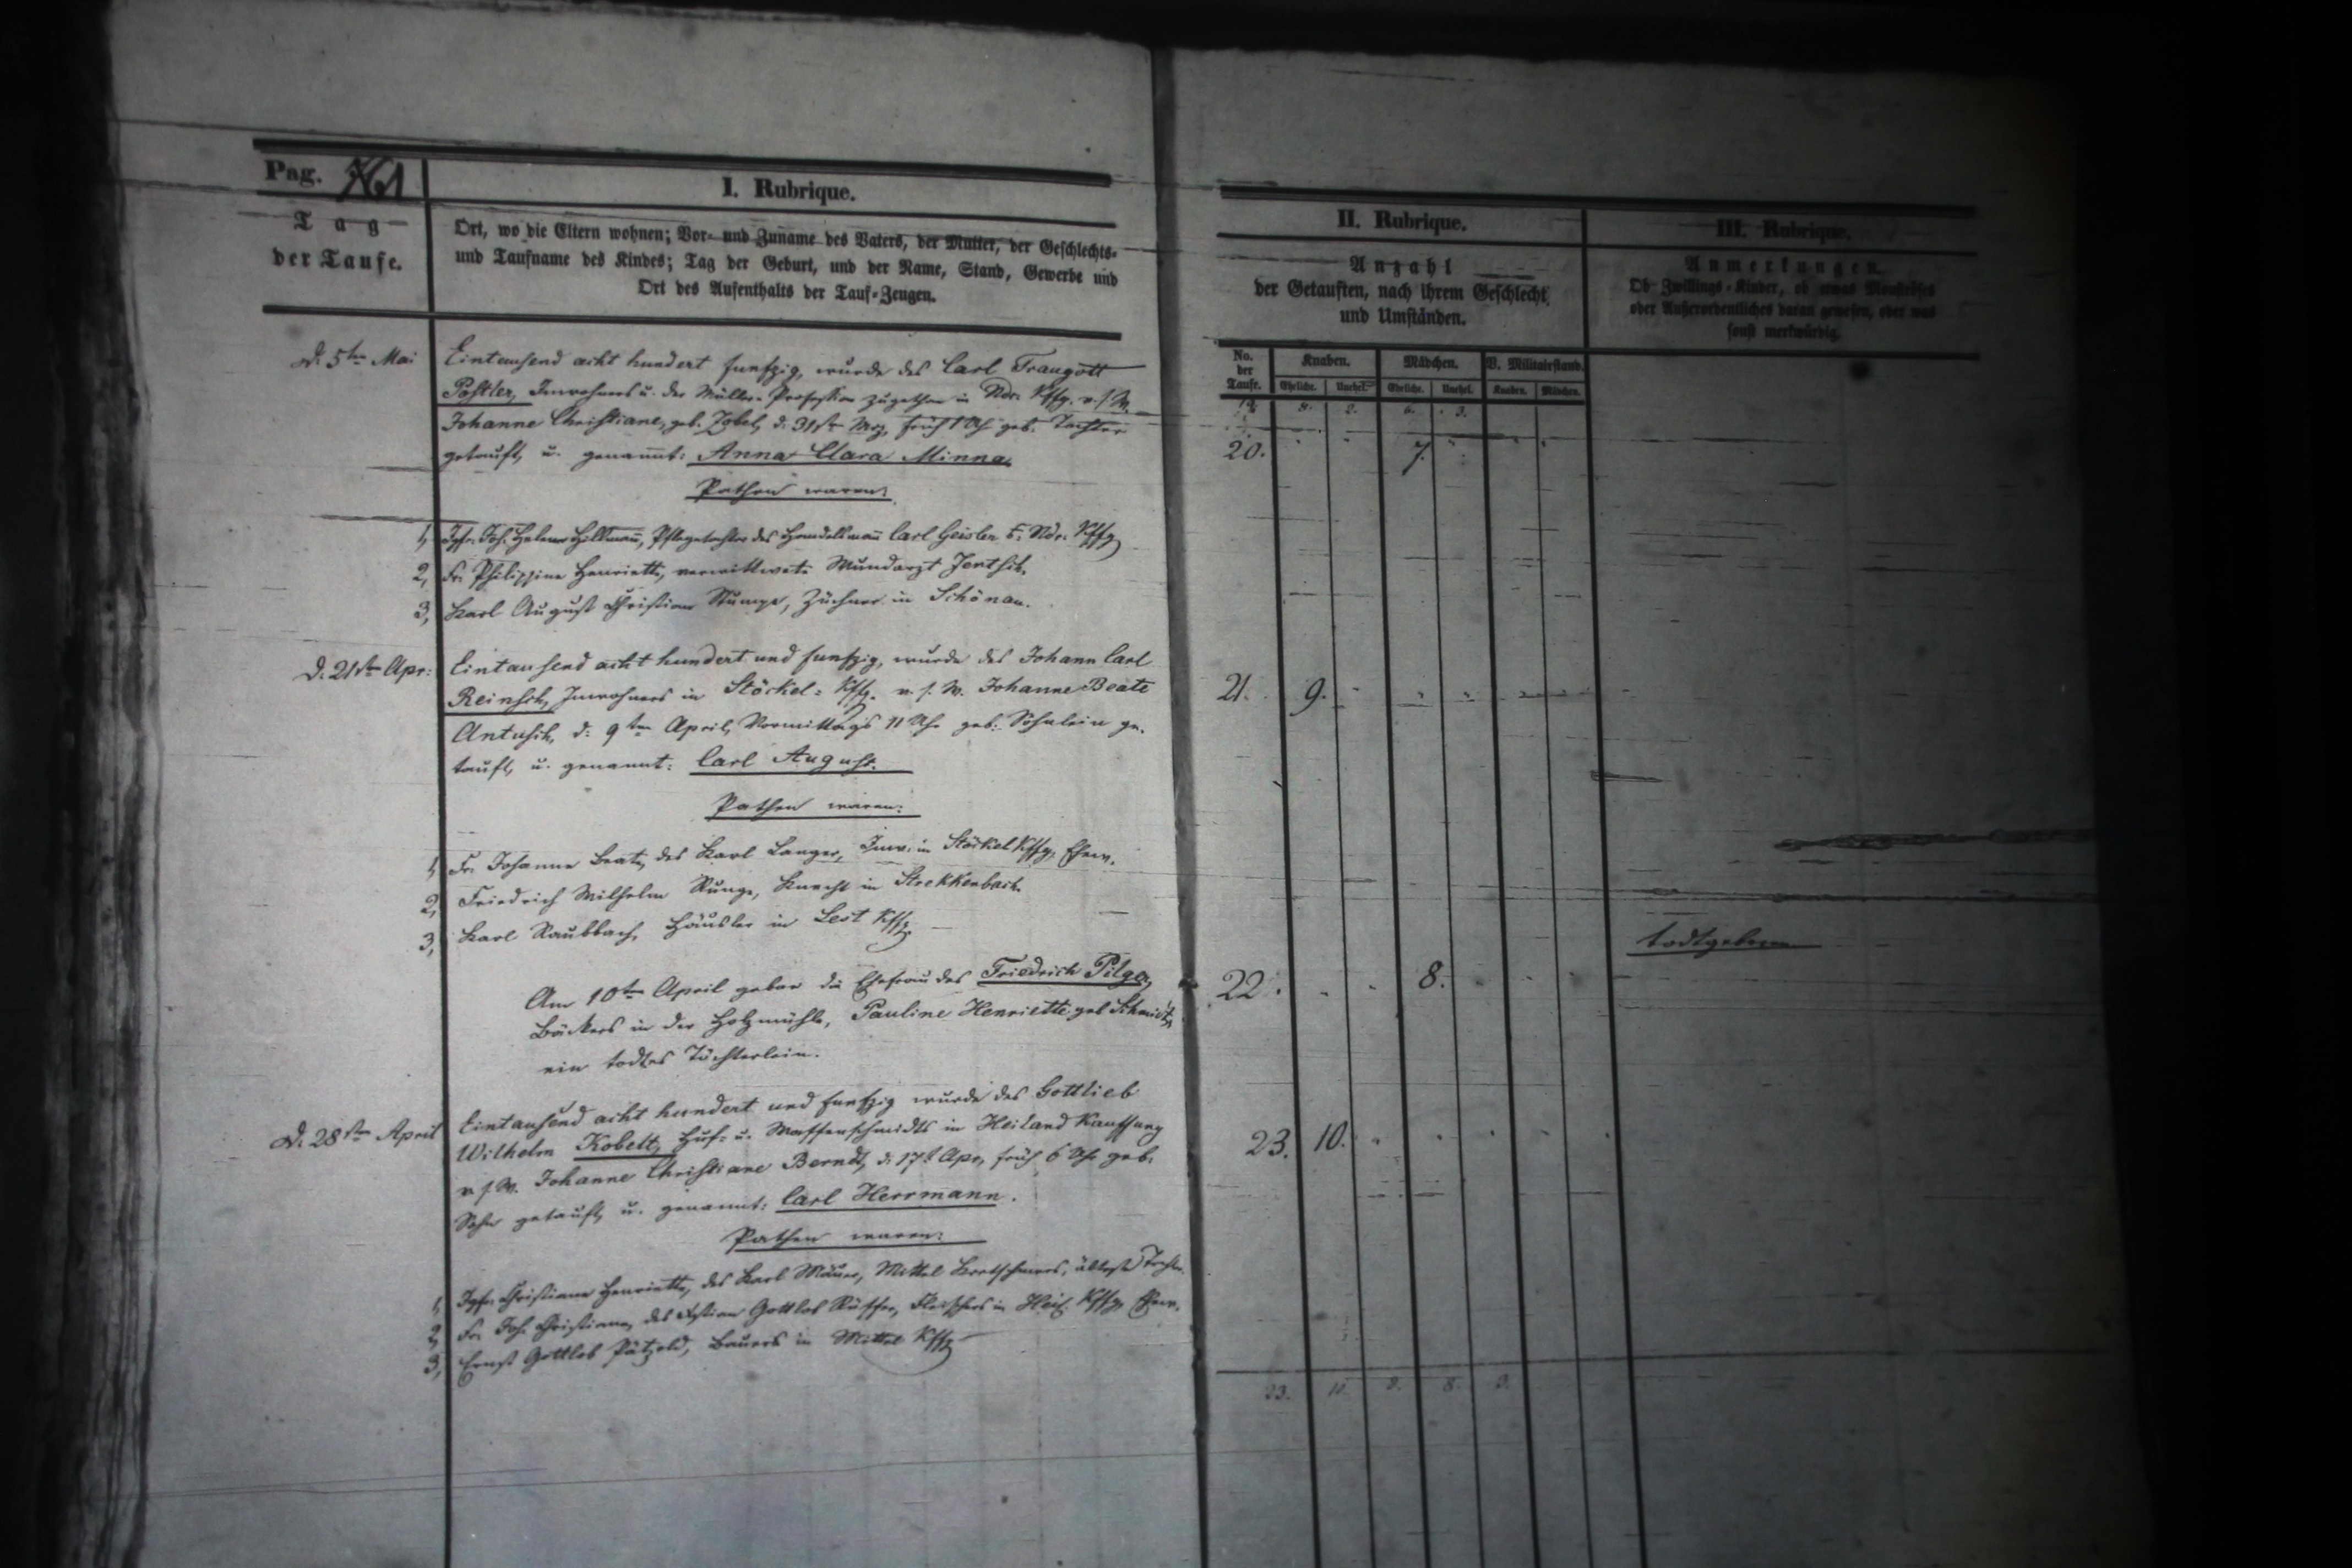 Pag. 761
I. Rubrique.
Tag
der Taufe.
Ort, wo die Eltern wohnen; Vor- und Zuname des Vaters, der Mutter, der Geschlechts-
und Taufname des Kindes; Tag der Geburt, und der Name, Stand, Gewerbe und
Ort des Aufenthalts der Tauf-Zeugen.
II. Rubrique.
Anzahl
der Getauften, nach ihrem Geschlecht
und Umständen.
III. Rubrique.
Anmerkungen.
Ob Zwillings-Kinder, ob etwas Monströses
oder Außerordentliches daran gewesen, oder was
sonst merkwürdig.
No. der Taufe.
Knaben. Mädchen. V. Militairstand.
Ehelich. Unehel. Ehelich. Unehel. Knaben. Mädchen.
19. 8. 2. 6. 3.
D. 5ten Mai Eintausend acht hundert funfzig, wurde des Carl Traugott
Postler, Inwohners u. der Müller-Profession zugethan in Ndr. Kffg. v. s. W.
Johanne Christiane, geb. Zobel, d. 31st Mrz, früh 1 Uhr geb. Tochter
getauft, u. genannt: Anna Clara Minna.
20. 7.
Pathen waren:
1, Jgfr. Joh. Helene Hillmann, Pflegetochter des Handelsmann Carl Geisler Ndr. Kffg
2, Fr. Philippine Henriette, verwittwete Wundarzt Jentsch.
3, Karl August Christian Stumpe, Züchner in Schönau.
D. 21sten Apr: Eintausend acht hundert und funfzig, wurde des Johann Carl
Reinsch, Inwohners in Stöckel-Kffg. v. s. W. Johanne Beate
Antusch, d. 9ten April, Vormittags 11 Uhr geb. Söhnlein ge-
tauft, u. genannt: Carl August.
21. 9.
Pathen waren:
1, Fr. Johanne Beate, des Karl Langer, Inw. in Stöckel Kffg, Ehew.
2, Friedrich Wilhelm Runge, Knecht in Streckenbach.
3, Karl Raubbach, Häusler in Lest Kffg.
Am 10ten April gebar die Ehefrau des Friedrich Pilger,
Bäckers in der Holzmühle, Pauline Henriette geb Schmidt,
ein todtes Töchterlein.
22. 8.
todtgeboren
D. 28sten April Eintausend acht hundert und funfzig wurde des Gottlieb
Wilhelm Kobelt, Huf- u. Waffenschmidts in Heiland Kauffung
v. s. W. Johanne Christiane Berndt, d. 17t Apr, früh 6 Uhr geb.
Sohn getauft, u. genannt: Carl Herrmann.
23. 10.
Pathen waren:
1, Jgfr. Christiane Henriette, des Karl Mäuer, Mittel Kretschmers, älteste Tochter.
2, Fr. Joh. Christiane, des Christian Gottlob Rüffer, Fleischers in Heil. Kffg. Ehew.
3, Ernst Gottlob Pätzold, Bauers in Mittel Kffg
23. 8. 3.